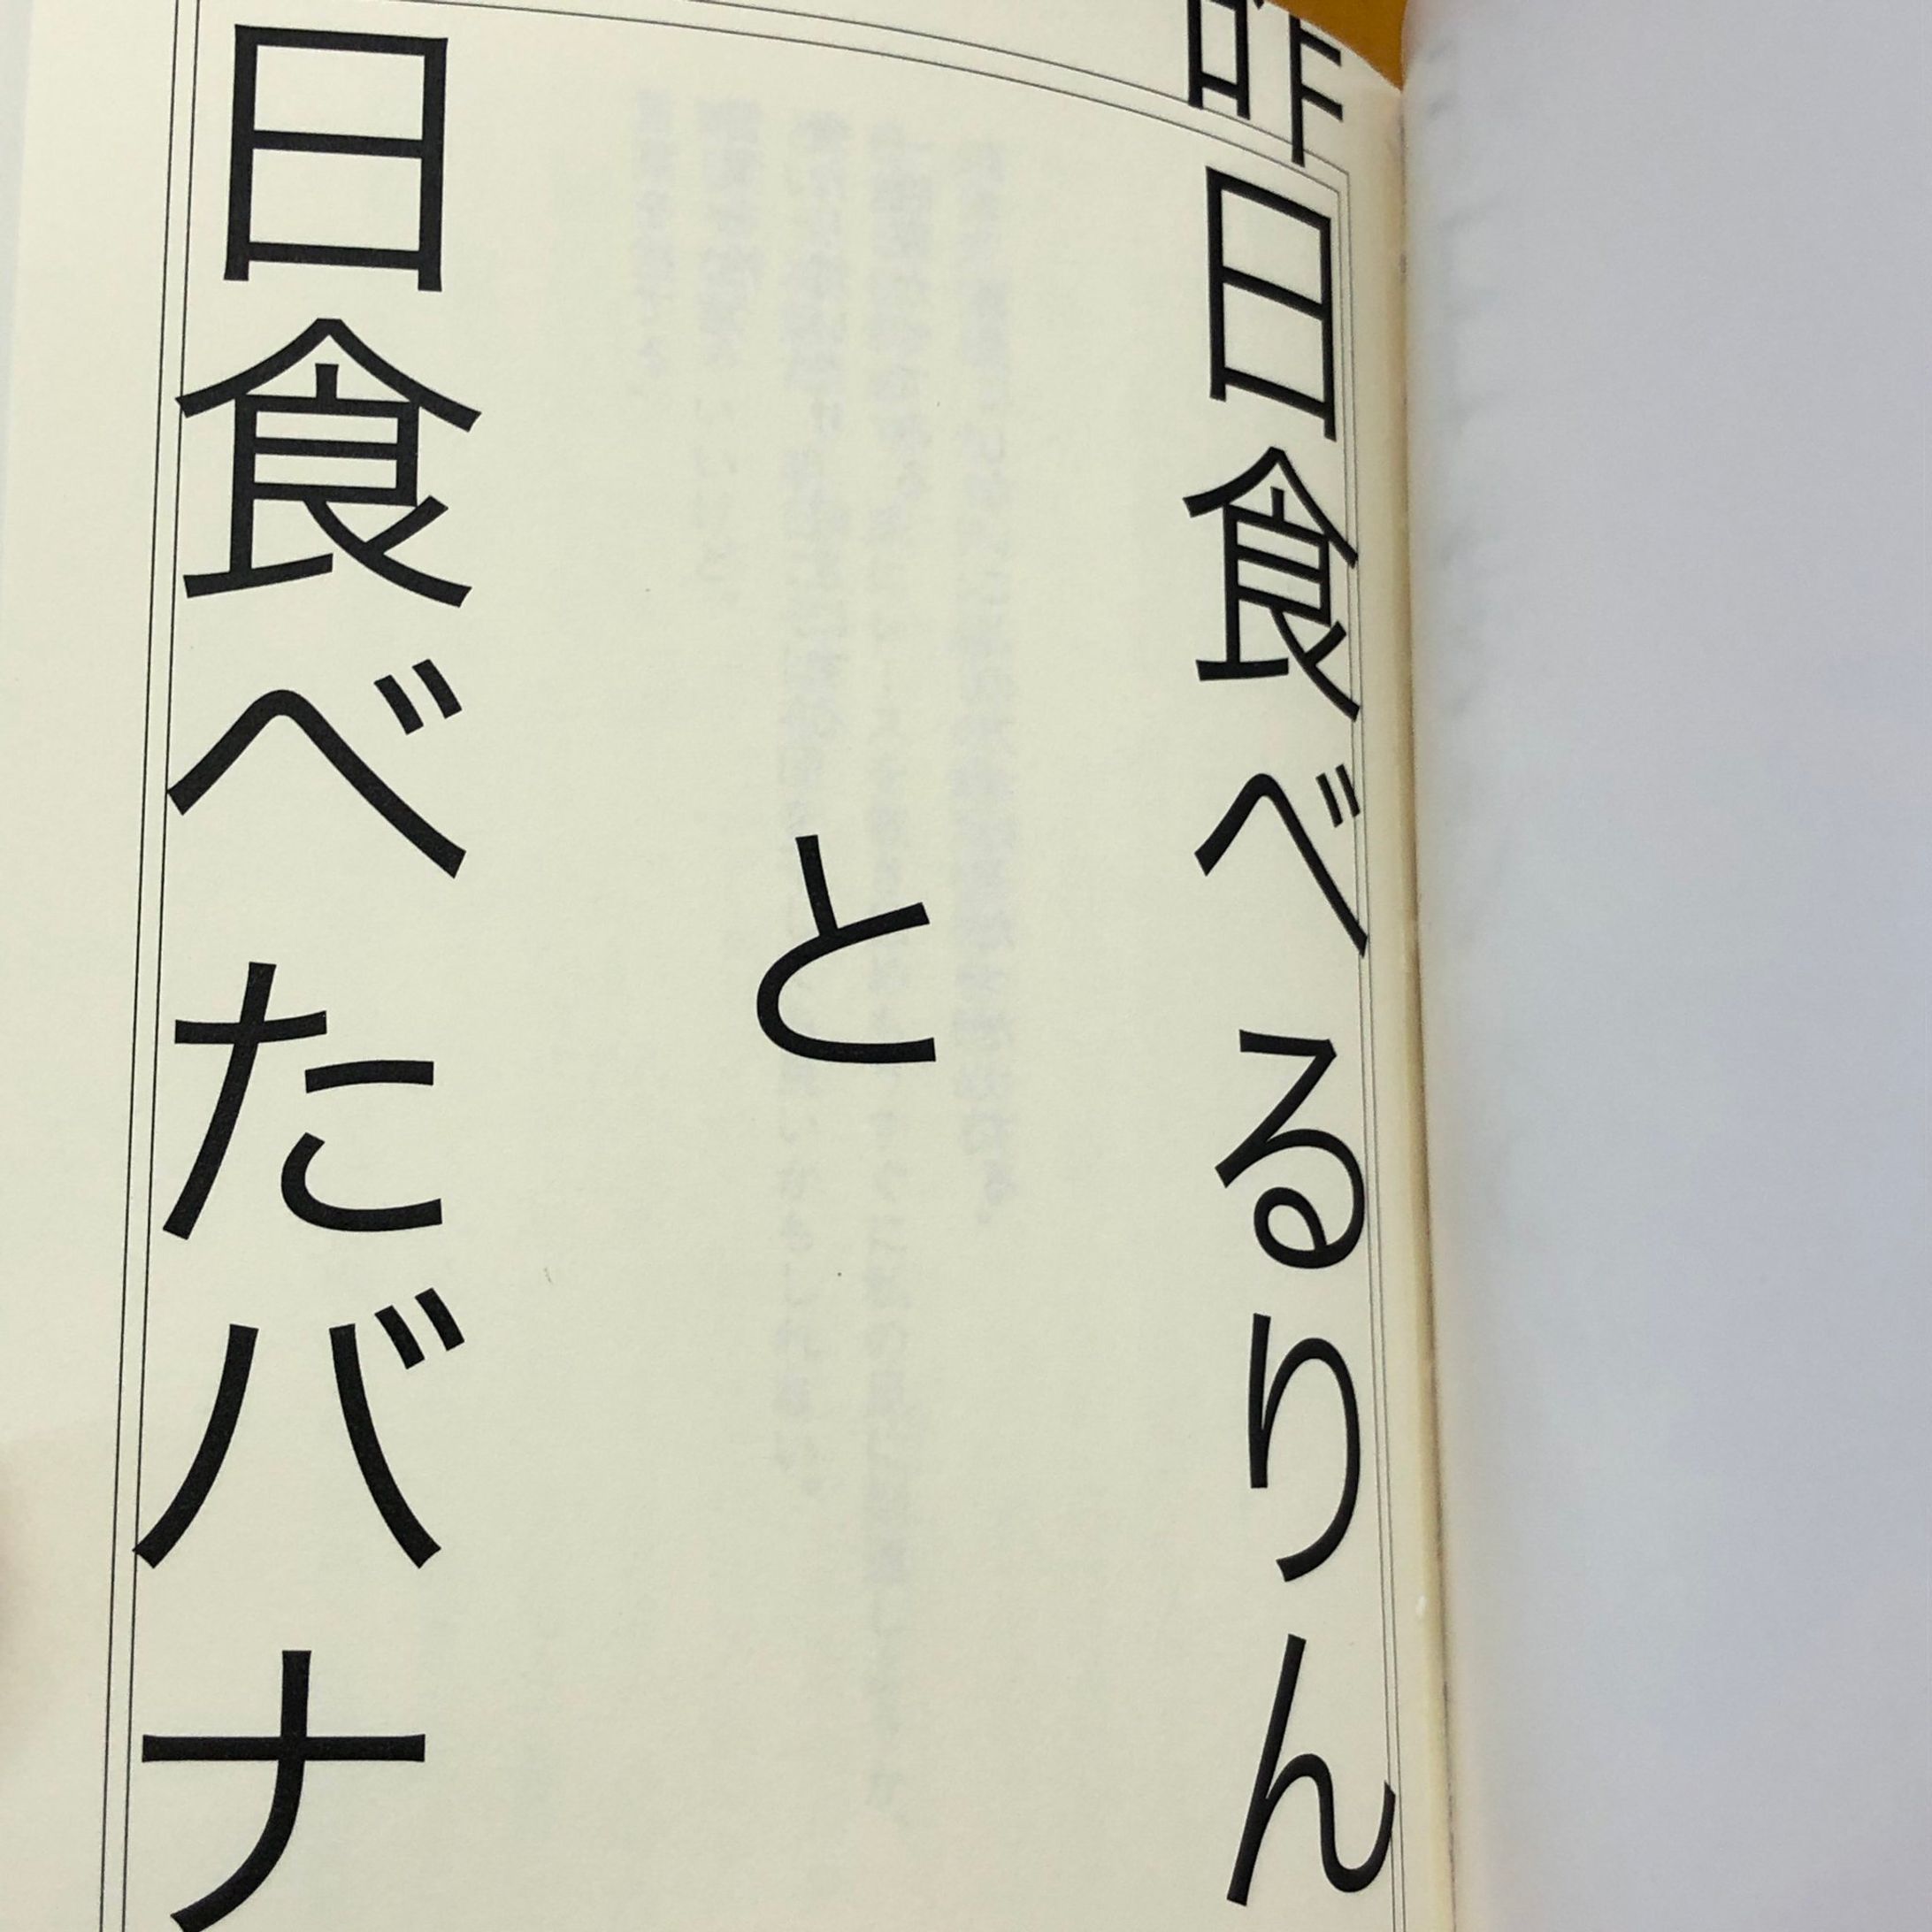 昨日食べるりん
と
日食べたバナ